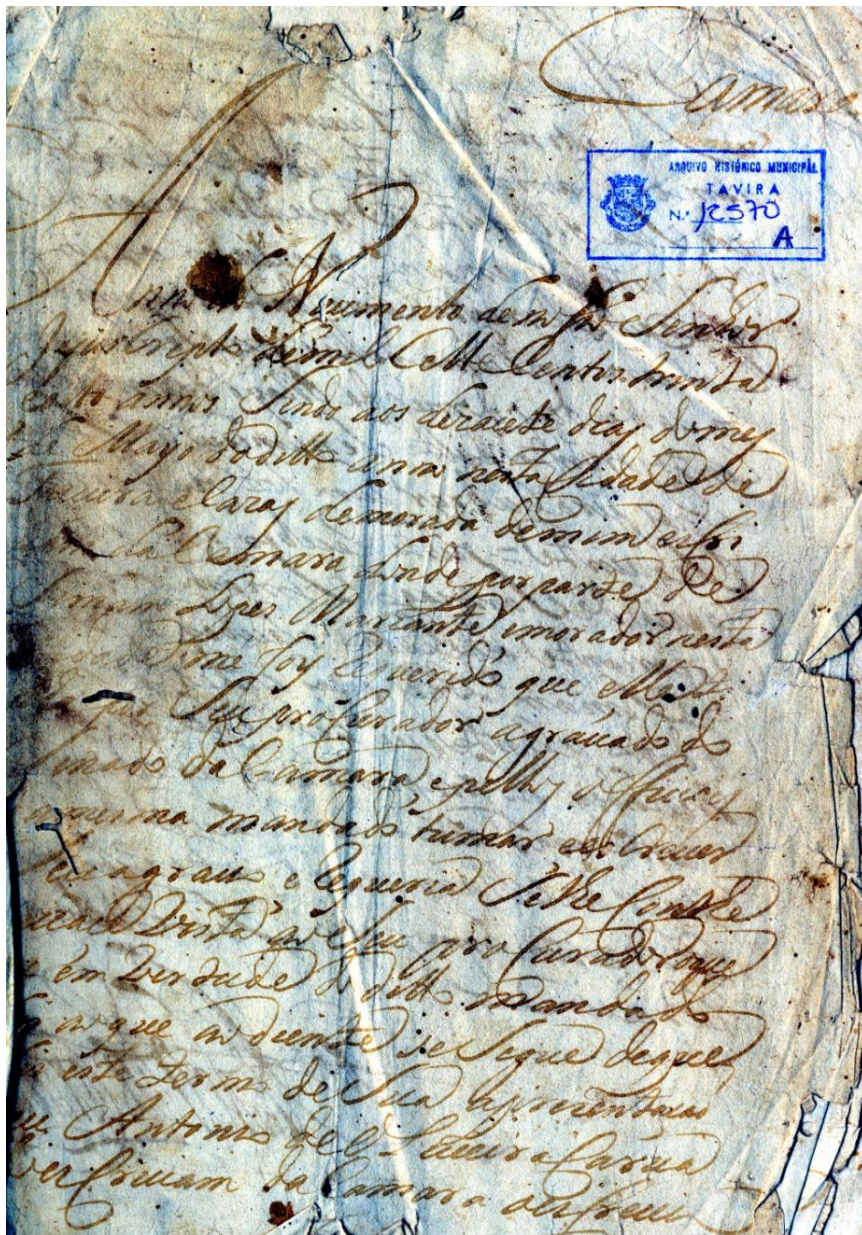 Camara
ARQUIVO HISTÓRICO MUNICIPAL
TAVIRA
N.º 12570
A
Anno do Nascimento de nosso Senhor
Jesus Cripto de mil e sette centos e trinta
e outo annos sendo aos dezacete dias do mes
de Mayo do ditto anno nesta Cidade de
Tavira e cazas de morada de mim escri
vam da Camara donde por parte de
Lopes Mareante e morador nesta
me foy Requerido que elle
por seu procurador agravado do
da Camara e pellos offeciaes
da mesma mandado tomar e escrever
seu agravo e Requeria se lhe
vista ao seu procurador o que
em verdade do ditto mandado
ao que ao diente se segue de que
fis este termo de
eu Antonio de
escrivam da Camara o escrevi